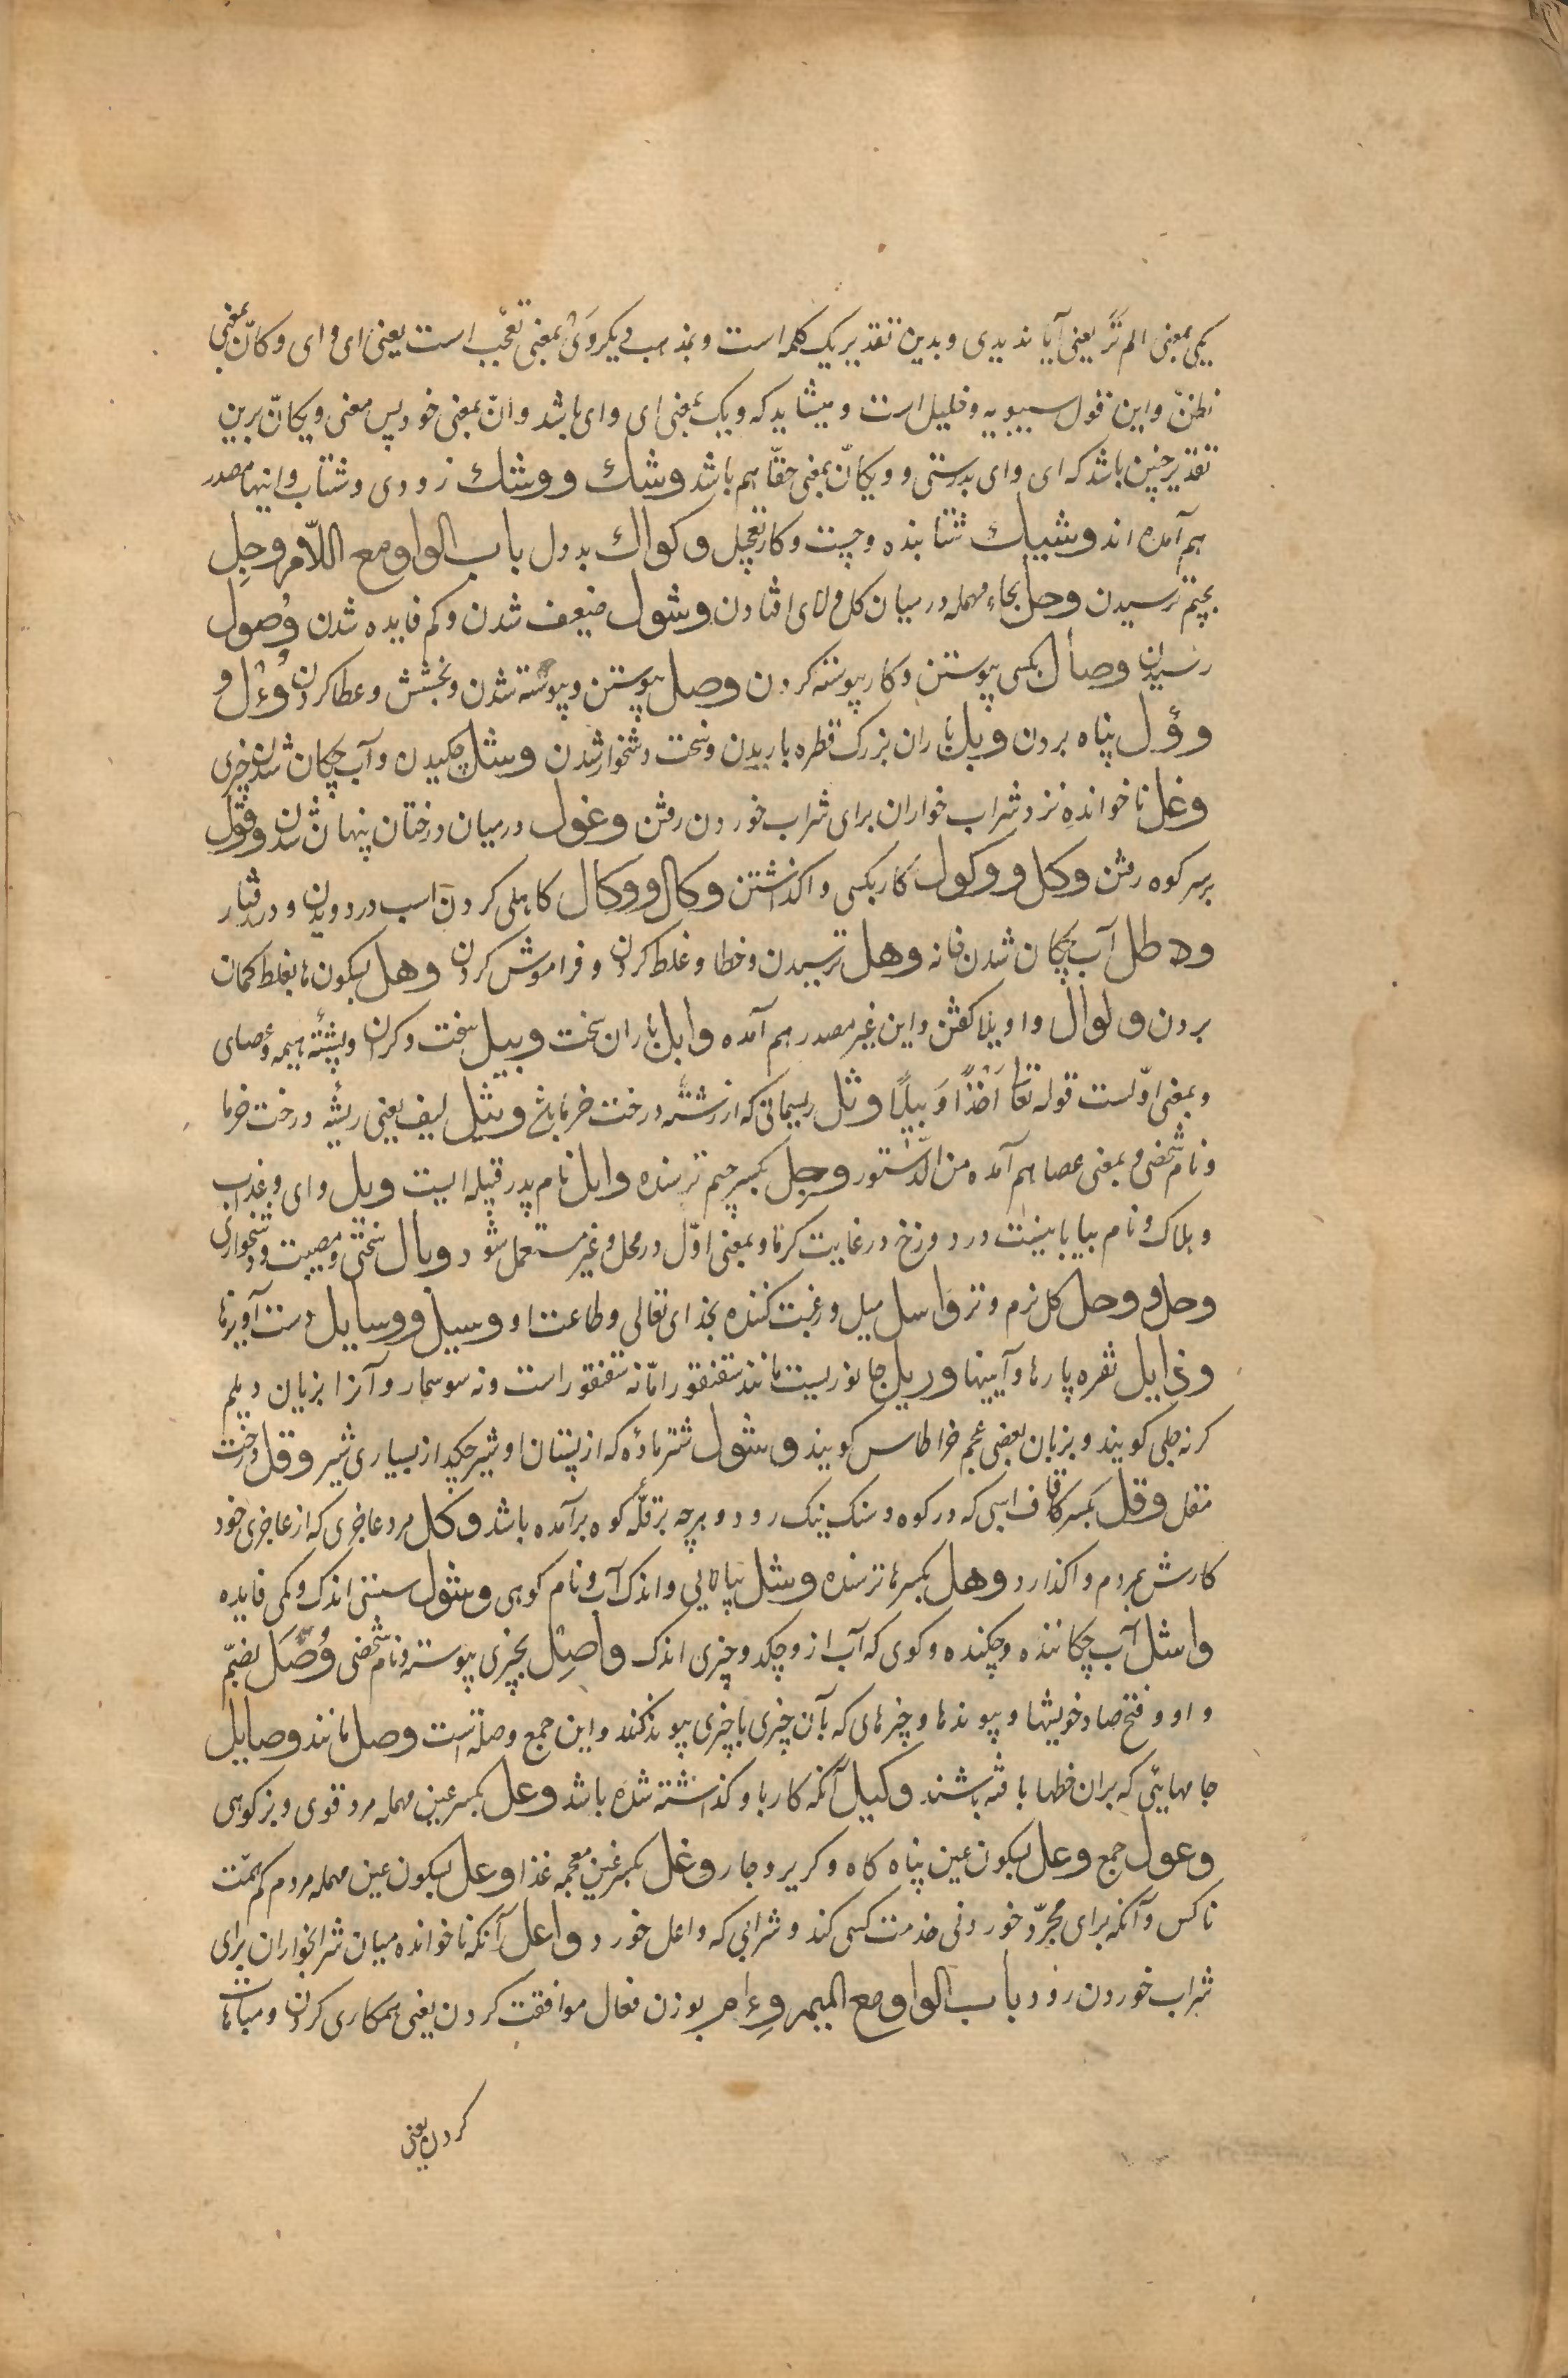 یکی بمعنی الم تَرَ یعنی آیا ندیدی و بدین تقدیر یک کلمه است و بمذهب دیکر وَیْ بمعنی تعجّب است یعنی ای وای و کانّ بمعنی
نظنّ و این قول سیبویه و خلیل است و میشاید که ویک بمعنی ای وای باشد و انّ بمعنی خود پس معنی ویکانّ برین
تقدیر چنین باشد که ای وای بدرستی و ویکانّ بمعنی حقّا هم باشد وشك ووشك زودی و شتاب و اینها مصدر
هم آمده اند وشیك شتابنده و چست و کار بتعجیل وکواك بددل باب الواو مع اللّام وجل
بجیم ترسیدن وحل بحاء مهمله در میان کل و لای افتادن وشول ضعیف شدن و کم فایده شدن وُصول
رسیدن وصأل بکسی پیوستن و کار پیوسته کردن وصل پیوستن و پیوسته شدن و بخشش و عطا کردن وُءْل و
وؤل پناه بردن وبل باران بزرک قطره باریدن و سخت و دشخوار شدن وشل چکیدن و آب چکان شدن چیزی
وغل ناخوانده نزد شراب خواران برای شراب خوردن رفتن وغول در میان درختان پنهان شدن وقول
بر سر کوه رفتن وکل ووکول کار بکسی واکذاشتن وکال ووکال کاهلی کردن اسب در دویدن و در رفتار
وهطل آب چکان شدن خانه وهل ترسیدن و خطا و غلط کردن و فراموش کردن وهل بسکون ها بغلط کمان
بردن ولوال واویلا کفتن و این غیر مصدر هم آمده وابل باران سخت وبیل سخت و کران و پشته هیمه و عصای
و بمعنی اوّلست قوله تعا اَخْذًا وَبِیلًا وثل ریسمانی که از رشته درخت خرما باشد وثیل لیف یعنی ریشه درخت خرما
و نام شخصی و بمعنی عصا هم آمده من الدّستور وجل بکسر جیم ترسنده وایل نام پدر قبیله ایست ویل وای و عذاب
و هلاک و نام بیابانیست در دوزخ در غایت کرما و بمعنی اوّل در محل و غیر مستعمل شود وبال سختی و مصیبت و دشخواری
وحل ووحل کل نرم و تر واسل میل و رغبت کننده بخدای تعالی و طاعت او وسیل ووسایل دست آویزها
وذایل نقره پارها و آیینها وریل جانوریست مانند سقنقور امّا نه سقنقور است و نه سوسمار و آنرا بزبان دیلم
کرنه جلی کویند و بزبان بعضی عجم خراطاس کویند وشول شتر ماده که از پستان او شیر چکد از بسیاری شیر وقل درخت
مقل وقل بکسر قاف اسبی که در کوه و سنک نیک رود و هر چه بر قلّه کوه برآمده باشد وکل مرد عاجزی که از عاجزی خود
کارش بمردم واکذارد وهل بکسر ها ترسنده وشل پیاپی و اندک آب و نام کوهی وشول سستی اندک و کمی فایده
واشل آب چکاننده و چکنده و کوی که آب ازو چکد و چیزی اندک واصِل بچیزی پیوسته و نام شخصی وُصَل بضمّ
واو و فتح صاد خویشها و پیوندها و چیزهای که بآن چیزی با چیزی پیوند کنند و این جمع وصلة است وصل مانند وصایل
جامهایی که بران خطها بافته باشند وکیل آنکه کار باو کذاشته شده باشد وعل بکسر عین مهمله مرد قوی و بز کوهی
وعول جمع وعل بسکون عین پناه کاه و کریز و جار وغل بکسر غین معجمه غذا وغل بسکون عین مهمله مردم کم همّت
ناکس و آنکه برای مجرّد خوردنی خدمت کسی کند و شرابی که واغل خورد واغل آنکه ناخوانده میان شرابخواران برای
شراب خوردن رود باب الواو مع المیم وِءام بوزن فعال موافقت کردن یعنی همکاری کردن و مباهات
کردن یعنی